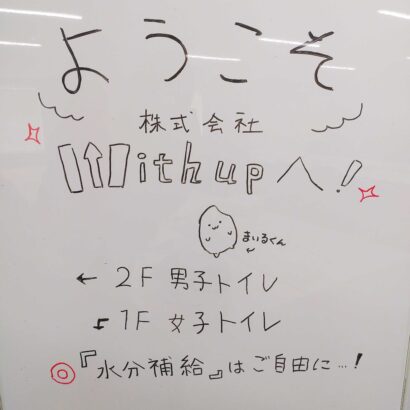 ようこそ
株式会社
Withupへ!
まいるくん
← 2F 男子トイレ
↰ 1F 女子トイレ
◎『水分補給』はご自由に…!